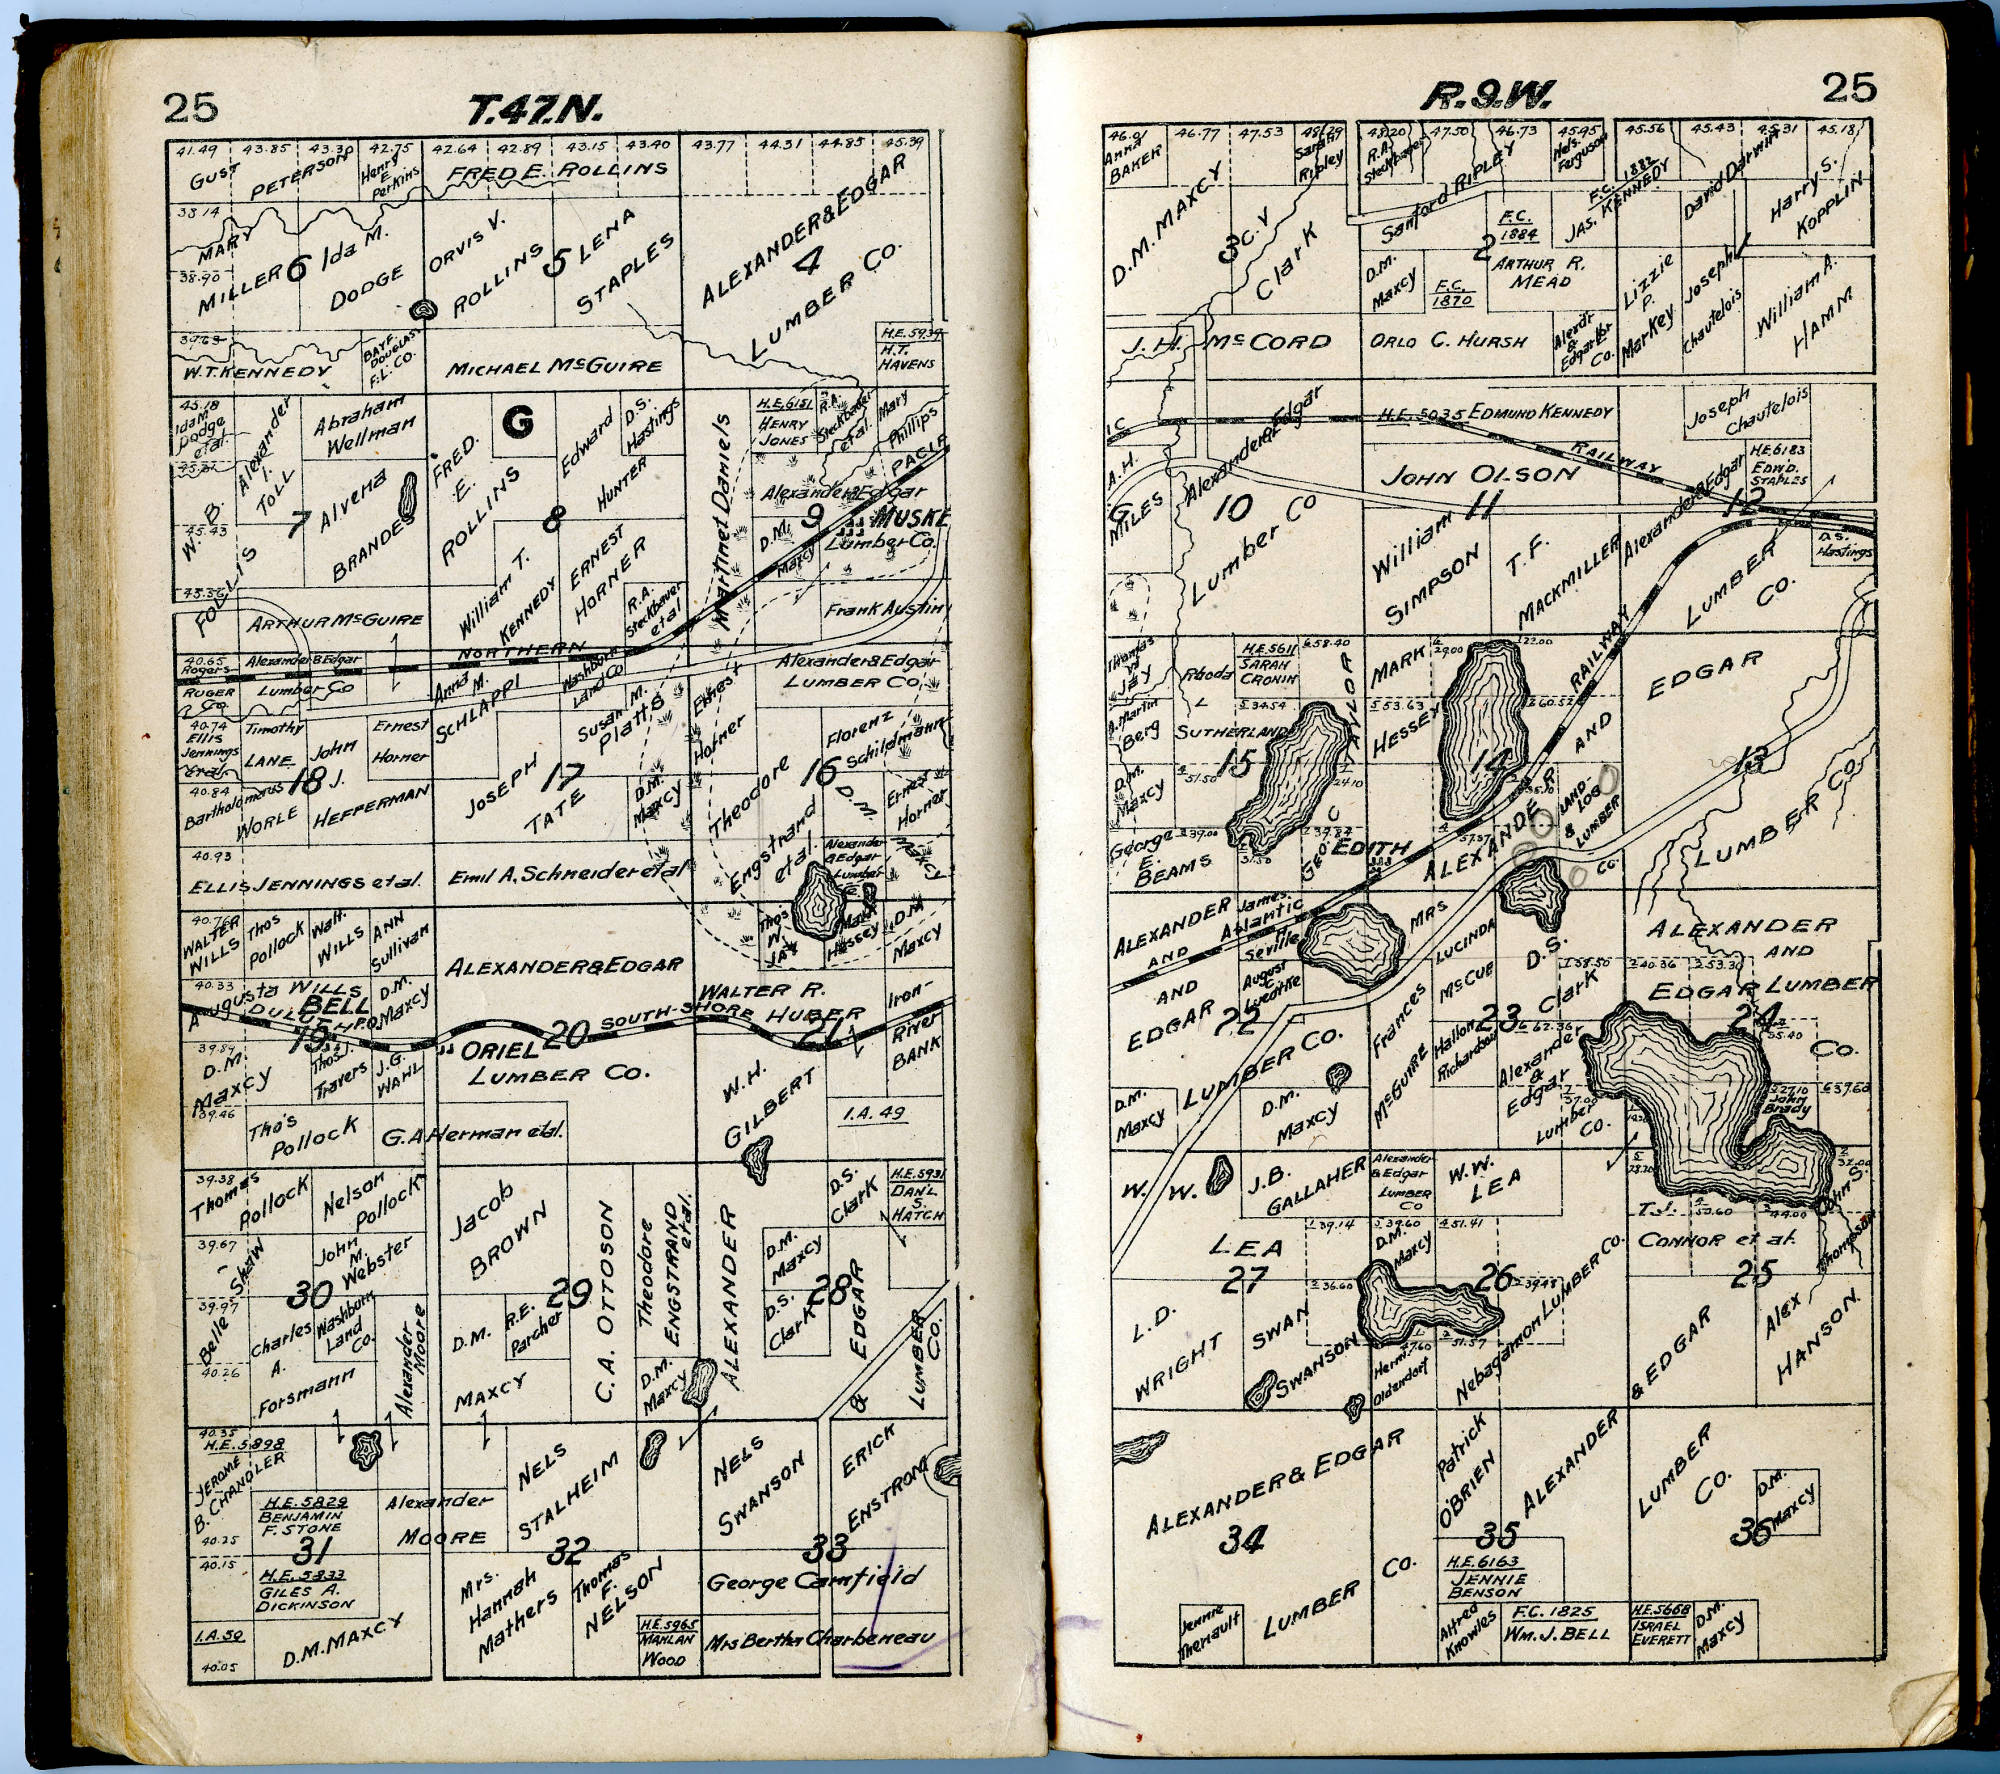 25
T.47.N.
41.49 43.85 43.30 42.75 42.64 42.89 43.15 43.40 43.77 44.31 44.85 45.39
GUST PETERSON
Henry E. Perkins
FRED E. ROLLINS
ALEXANDER & EDGAR LUMBER CO.
4
38.14
MARY MILLER
38.90
6
Ida M. DODGE
ORVIS V. ROLLINS
5
LENA STAPLES
39.63
W.T. KENNEDY
BAYF. DOUGLAS F.L. CO.
MICHAEL McGUIRE
H.E. 5939
H.T. HAVENS
45.18
Ida M. Dodge et al.
Alexander I. TOLL
Abraham Wellman
FRED. E. ROLLINS
G
Edward HUNTER
D.S. Hastings
Martinet Daniels
H.E. 6151
HENRY JONES
R.A. Steckbauer et al.
Mary Phillips
PACIF
W. B. FOLLIS
45.43
7
Alvena BRANDES
8
Alexander & Edgar
9
MUSKE
Lumber Co.
D.M. Maxcy
William T. KENNEDY
ERNEST HORNER
R.A. Steckbauer et al
Frank Austin
45.56
ARTHUR McGUIRE
NORTHERN
40.65
Rogers RUGER Co
Alexander & Edgar
Lumber Co
Anna M. SCHLAPPI
Washburn Land Co
Alexander & Edgar
LUMBER CO.
40.74
Ellis Jennings et al.
Timothy LANE
John J. HEFFERMAN
Ernest Horner
18
JOSEPH TATE
17
Susan M. Platts
Ernest Horner
Theodore Engstrand et al.
16
Florenz Schildmann
40.84
Bartholomaus WORLE
D.M. Maxcy
D.M. Maxcy
Ernest Horner
40.93
ELLIS JENNINGS et al.
Emil A. Schneider et al
Alexander & Edgar Lumber Co
40.76
WALTER WILLS
Thos Pollock
Walt. WILLS
ANN Sullivan
ALEXANDER & EDGAR
Tho's W. JAY
Mark Hessey
D.M. Maxcy
40.33
Augusta WILLS
D.M. Maxcy
BELL
DULUTH
SOUTH-SHORE
WALTER R. HUBER
Iron-River BANK
19
20
21
39.89
D.M. Maxcy
Thos J. Travers
J.G. WAHL
ORIEL
LUMBER CO.
W.H. GILBERT
39.46
Tho's Pollock
G.A. Herman etal.
I.A. 49
39.38
Thomas Pollock
Nelson Pollock
Jacob BROWN
C.A. OTTOSON
Theodore ENGSTRAND et al.
D.S. Clark
H.E. 5931
DAN'L S. HATCH
39.67
Belle Shaw
John M. Webster
30
29
ALEXANDER & EDGAR LUMBER CO.
D.M. Maxcy
28
39.97
Charles A. Forsmann
Washburn Land Co.
Alexander Moore
D.M. MAXCY
R.E. Parcher
D.S. Clark
40.26
D.M. Maxcy
40.35
H.E. 5898
JEROME B. CHANDLER
NELS STALHEIM
NELS SWANSON
ERICK ENSTROM
H.E. 5829
BENJAMIN F. STONE
Alexander MOORE
40.25
31
32
33
40.15
H.E. 5833
GILES A. DICKINSON
Mrs. Hannah Mathers
Thomas F. NELSON
George Camfield
I.A. 50
D.M. MAXCY
H.E. 5965
MAHLAN WOOD
Mrs Bertha Charbeneau
40.05
R.9.W.
25
46.01 46.77 47.53 48.29 48.20 47.50 46.73 45.95 45.56 45.43 45.31 45.18
Anna BAKER
D.M. MAXCY
Sarah Ripley
R.A. Steckbauer
Sanford RIPLEY
Nels. Ferguson
F.C. 1882
JAS. KENNEDY
David Darwin
Harry S. KOPPLIN
3
C.V. Clark
F.C. 1884
2
D.M. Maxcy
F.C. 1870
ARTHUR R. MEAD
Lizzie P. Markey
Joseph Chautelois
William A. HAMM
J.H. McCORD
ORLO C. HURSH
Alex'dr & Edgar Lbr Co.
IC
Alexander & Edgar
H.E. 5035 EDMUND KENNEDY
RAILWAY
Joseph Chautelois
A.H. MILES
Lumber Co
10
JOHN OLSON
11
H.E. 6183
EDW'D. STAPLES
12
William SIMPSON
T.F. MACKMILLER
Alexander & Edgar
LUMBER CO.
D.S. Hastings
Thomas W. Jay
Rhoda L SUTHERLAND
H.E. 5611
SARAH CRONIN
58.40
MARK HESSEY
29.00
22.00
RAILWAY
EDGAR
34.54
53.63
60.52
A. Martin Berg
15
14
AND
13
D.M. Maxcy
51.50
24.10
LAND-LOG & LUMBER CO.
LUMBER CO.
George E. BEAMS
39.00
31.50
GEO. C
39.82
EDITH
57.37
ALEXANDER
ALEXANDER AND EDGAR
James Seville
Atlantic
AND
MRS LUCINDA McCUE
D.S. Clark
ALEXANDER AND EDGAR LUMBER Co.
August Luedtke
22
23
58.50
40.36
53.30
24
LUMBER CO.
Frances McGUIRE
Hallon Richardson
62.36
55.40
Alexander & Edgar Lumber Co.
D.M. Maxcy
D.M. Maxcy
37.00
27.10
John Brady
39.60
W. W. LEA
J.B. GALLAHER
Alexander & Edgar LUMBER CO
W.W. LEA
28.20
32.00
39.14
39.60
51.41
T.J. CONNOR et al.
50.60
44.00
John S. Thompson
27
D.M. Maxcy
26
25
36.60
39.48
L.D. WRIGHT
SWAN SWANSON
Nebagamon Lumber Co.
Herm. Oldendorf
47.60
51.57
& EDGAR
Alex HANSON
ALEXANDER & EDGAR
Patrick O'BRIEN
ALEXANDER
LUMBER CO.
D.M. Maxcy
34
35
36
LUMBER CO.
H.E. 6163
JENNIE BENSON
Jennie Theriault
Alfred Knowles
F.C. 1825
WM. J. BELL
H.E. 5668
ISRAEL EVERETT
D.M. Maxcy